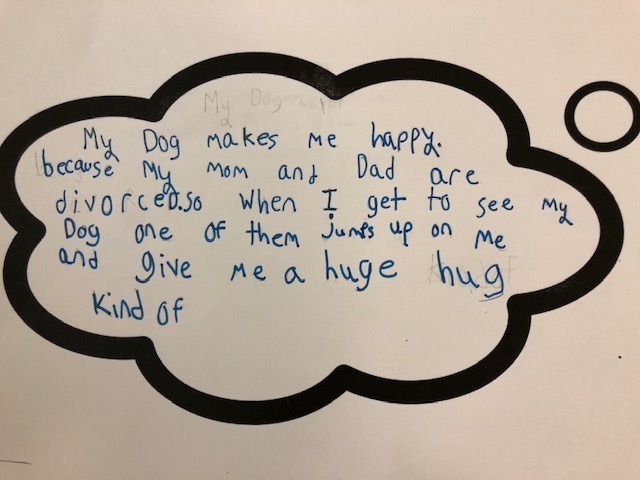 My Dog makes
My Dog makes me happy.
because My mom and Dad are
divorced.so when I get to see my
Dog one of them jumps up on me
and give me a huge hug
Kind of